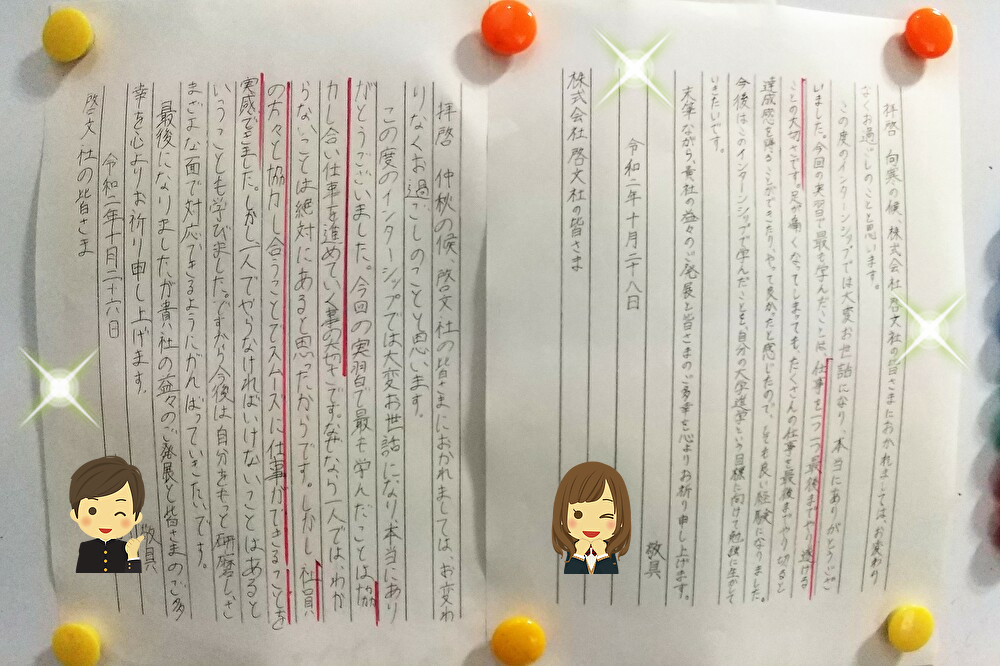 拝啓　向寒の候、株式会社啓文社の皆さまにおかれましては、お変わり
なくお過ごしのことと思います。
この度のインターンシップでは大変お世話になり、本当にありがとうござ
いました。今回の実習で最も学んだことは、仕事を一つ一つ最後までやり遂げる
ことの大切さです。足が痛くなってしまっても、たくさんの仕事を最後までやり切ると
達成感を得ることができたり、やって良かったと感じたので、とても良い経験になりました。
今後はこのインターンシップで学んだことを、自分の大学進学という目標に向けて勉強に生かして
いきたいです。
末筆ながら、貴社の益々のご発展と皆さまのご多幸を心よりお祈り申し上げます。
敬具
令和二年十月二十八日
株式会社啓文社の皆さま
拝啓　仲秋の候、啓文社の皆さまにおかれましては、お変わ
りなくお過ごしのことと思います。
この度のインターシップでは大変お世話になり本当にあり
がとうございました。今回の実習で最も学んだことは協
力し合い仕事を進めていく事の大切さです。なぜなら一人では、わか
らないことは絶対にあると思ったからです。しかし、社員
の方々と協力し合うことでスムーズに仕事ができることを
実感できました。しかし一人でやらなければいけないことはあると
いうことも学びました。ですから今後は自分をもっと研磨し、さ
まざまな面で対応できるようにがんばっていきたいです。
最後になりましたが貴社の益々のご発展と皆さまのご多
幸を心よりお祈り申し上げます。
敬具
令和二年十月二十六日
啓文社の皆さま